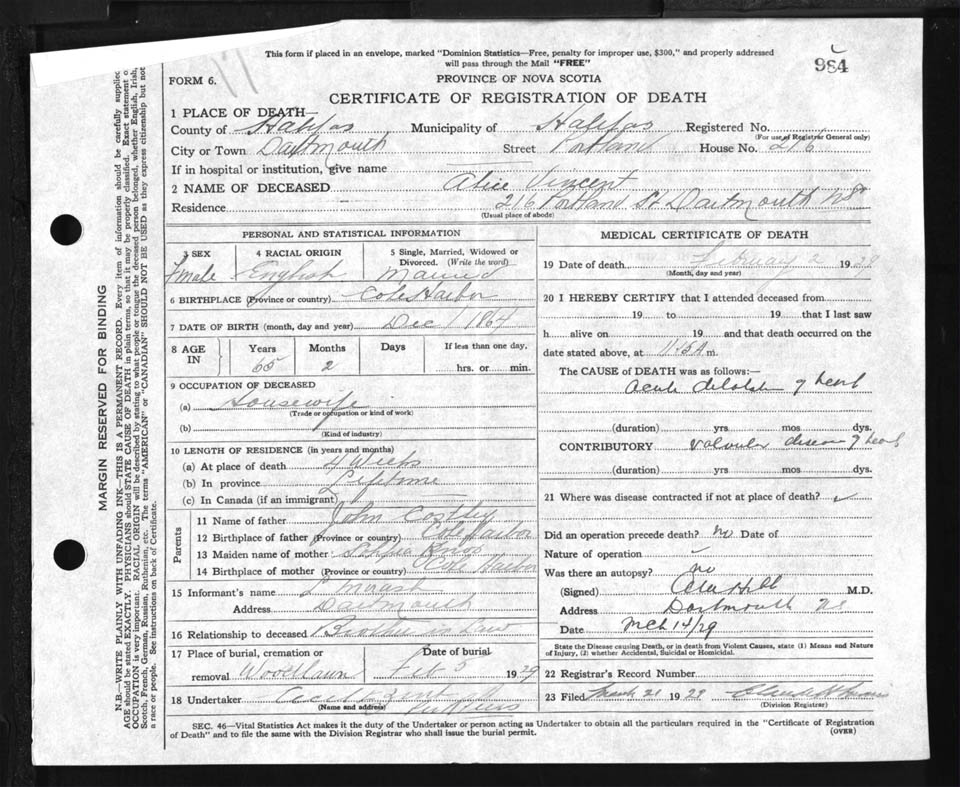 This form if placed in an envelope, marked "Dominion Statistics—Free, penalty for improper use, $300," and properly addressed
will pass through the Mail "FREE"
984
FORM 6.
PROVINCE OF NOVA SCOTIA
CERTIFICATE OF REGISTRATION OF DEATH
1 PLACE OF DEATH—
County of Halifax Municipality of Halifax Registered No.
(For use of Registrar General only)
City or Town Dartmouth Street Portland House No. 216
If in hospital or institution, give name
2 NAME OF DECEASED Alice Vincent
Residence 216 Portland St Dartmouth NS
(Usual place of abode)
PERSONAL AND STATISTICAL INFORMATION
3 SEX 4 RACIAL ORIGIN 5 Single, Married, Widowed or
Divorced. (Write the word)
Fmale English Married
6 BIRTHPLACE (Province or country) Cole Harbor
7 DATE OF BIRTH (month, day and year) Dec 1 1864
8 AGE IN Years Months Days If less than one day,
65 2 hrs. or min.
9 OCCUPATION OF DECEASED
(a) Housewife
(Trade or occupation or kind of work)
(b)
(Kind of industry)
10 LENGTH OF RESIDENCE (in years and months)
(a) At place of death 4 Weeks
(b) In province Lifetime
(c) In Canada (if an immigrant)
Parents
11 Name of father John
12 Birthplace of father (Province or country) Cole Harbor
13 Maiden name of mother
14 Birthplace of mother (Province or country) Cole Harbor
15 Informant's name
Address Dartmouth
16 Relationship to deceased Brother in Law
17 Place of burial, cremation or Date of burial
removal Woodlawn Feb 5 1929
18 Undertaker
(Name and address)
MEDICAL CERTIFICATE OF DEATH
19 Date of death February 2 1929
(Month, day and year)
20 I HEREBY CERTIFY that I attended deceased from
19 to 19 that I last saw
h alive on 19 and that death occurred on the
date stated above, at m.
The CAUSE of DEATH was as follows:—
acute dilatation of heart
(duration) yrs mos dys.
CONTRIBUTORY valvular disease of heart
(duration) yrs mos dys.
21 Where was disease contracted if not at place of death?
Did an operation precede death? no Date of
Nature of operation
Was there an autopsy? no
(Signed) Hill M.D.
Address Dartmouth NS
Date Mch 14/29
State the Disease causing Death, or in death from Violent Causes, state (1) Means and Nature
of Injury, (2) whether Accidental, Suicidal or Homicidal.
22 Registrar's Record Number
23 Filed March 21 1929
(Division Registrar)
SEC. 46—Vital Statistics Act makes it the duty of the Undertaker or person acting as Undertaker to obtain all the particulars required in the "Certificate of Registration
of Death" and to file the same with the Division Registrar who shall issue the burial permit. (OVER)
MARGIN RESERVED FOR BINDING
N.B.—WRITE PLAINLY WITH UNFADING INK—THIS IS A PERMANENT RECORD. Every item of information should be carefully supplied
AGE should be stated EXACTLY. PHYSICIANS should STATE CAUSE OF DEATH in plain terms, so that it may be properly classified. Exact statement of
OCCUPATION is very important. RACIAL ORIGIN will be described by stating to what people or tongue the deceased person belonged, whether English, Irish,
Scotch, French, German, Russian, Ruthenian, etc. The terms "AMERICAN" or "CANADIAN" SHOULD NOT BE USED as they express citizenship but not
a race or people. See instructions on back of Certificate.